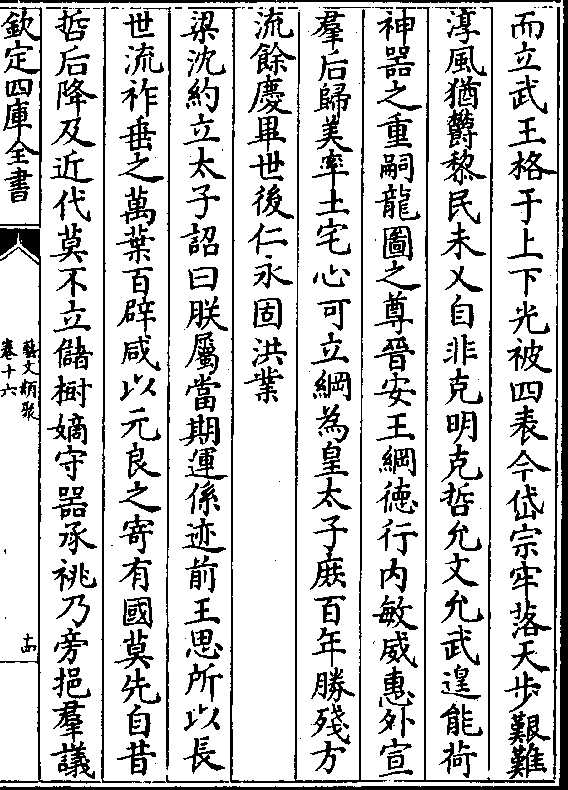 而立武王格于上下光被四表今岱宗牢落天步艱難
淳風猶欝黎民未乂自非克明克哲允文允武遑能荷
神器之重嗣龍圖之尊晉安王綱德行内敏威惠外宣
羣后歸美率土宅心可立綱為皇太子庻百年勝殘方
流餘慶畢世後仁永固洪業
梁沈約立太子詔曰朕屬當期運係迹前王思所以長
世流祚垂之萬葉百辟咸以元良之寄有國莫先自昔
哲后降及近代莫不立儲樹嫡守器承祧乃旁挹羣議
欽定四庫全書
藝文類聚
卷十六
十四